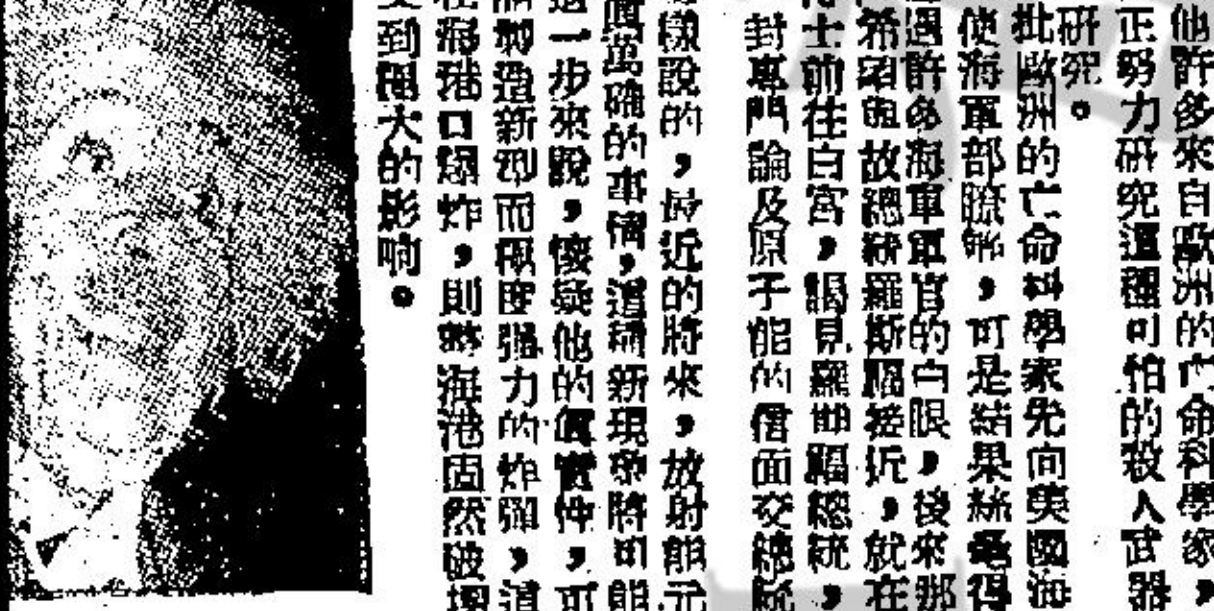 他許多來自歐洲的亡命科學家，
正努力研究這種可怕的殺人武器
研究。
批歐洲的亡命科學家先向美國海
使海軍部瞭解，可是結果絲毫得
過許多海軍軍官的白眼，後來那
希望與故總統羅斯福接近，就在
士前往白宮，謁見羅斯福總統，
封專門論及原子能的信面交總統
樣說的，最近的將來，放射能元
真萬確的事情，這種新現象將可能
這一步來說，懷疑他的真實性，可
製造新型而極度强力的炸彈，這
在海港口爆炸，則整海港固然破壞
受到極大的影响。